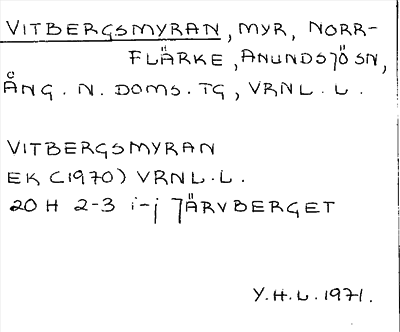 VITBERGSMYRAN, MYR, NORR-
FLÄRKE, ANUNDSJÖ SN,
ÅNG. N. DOMS. TG, VRNL. L.
VITBERGSMYRAN
EK (1970) VRNL. L.
20 H 2-3 i-j JÄRVBERGET
Y.H.L. 1971.